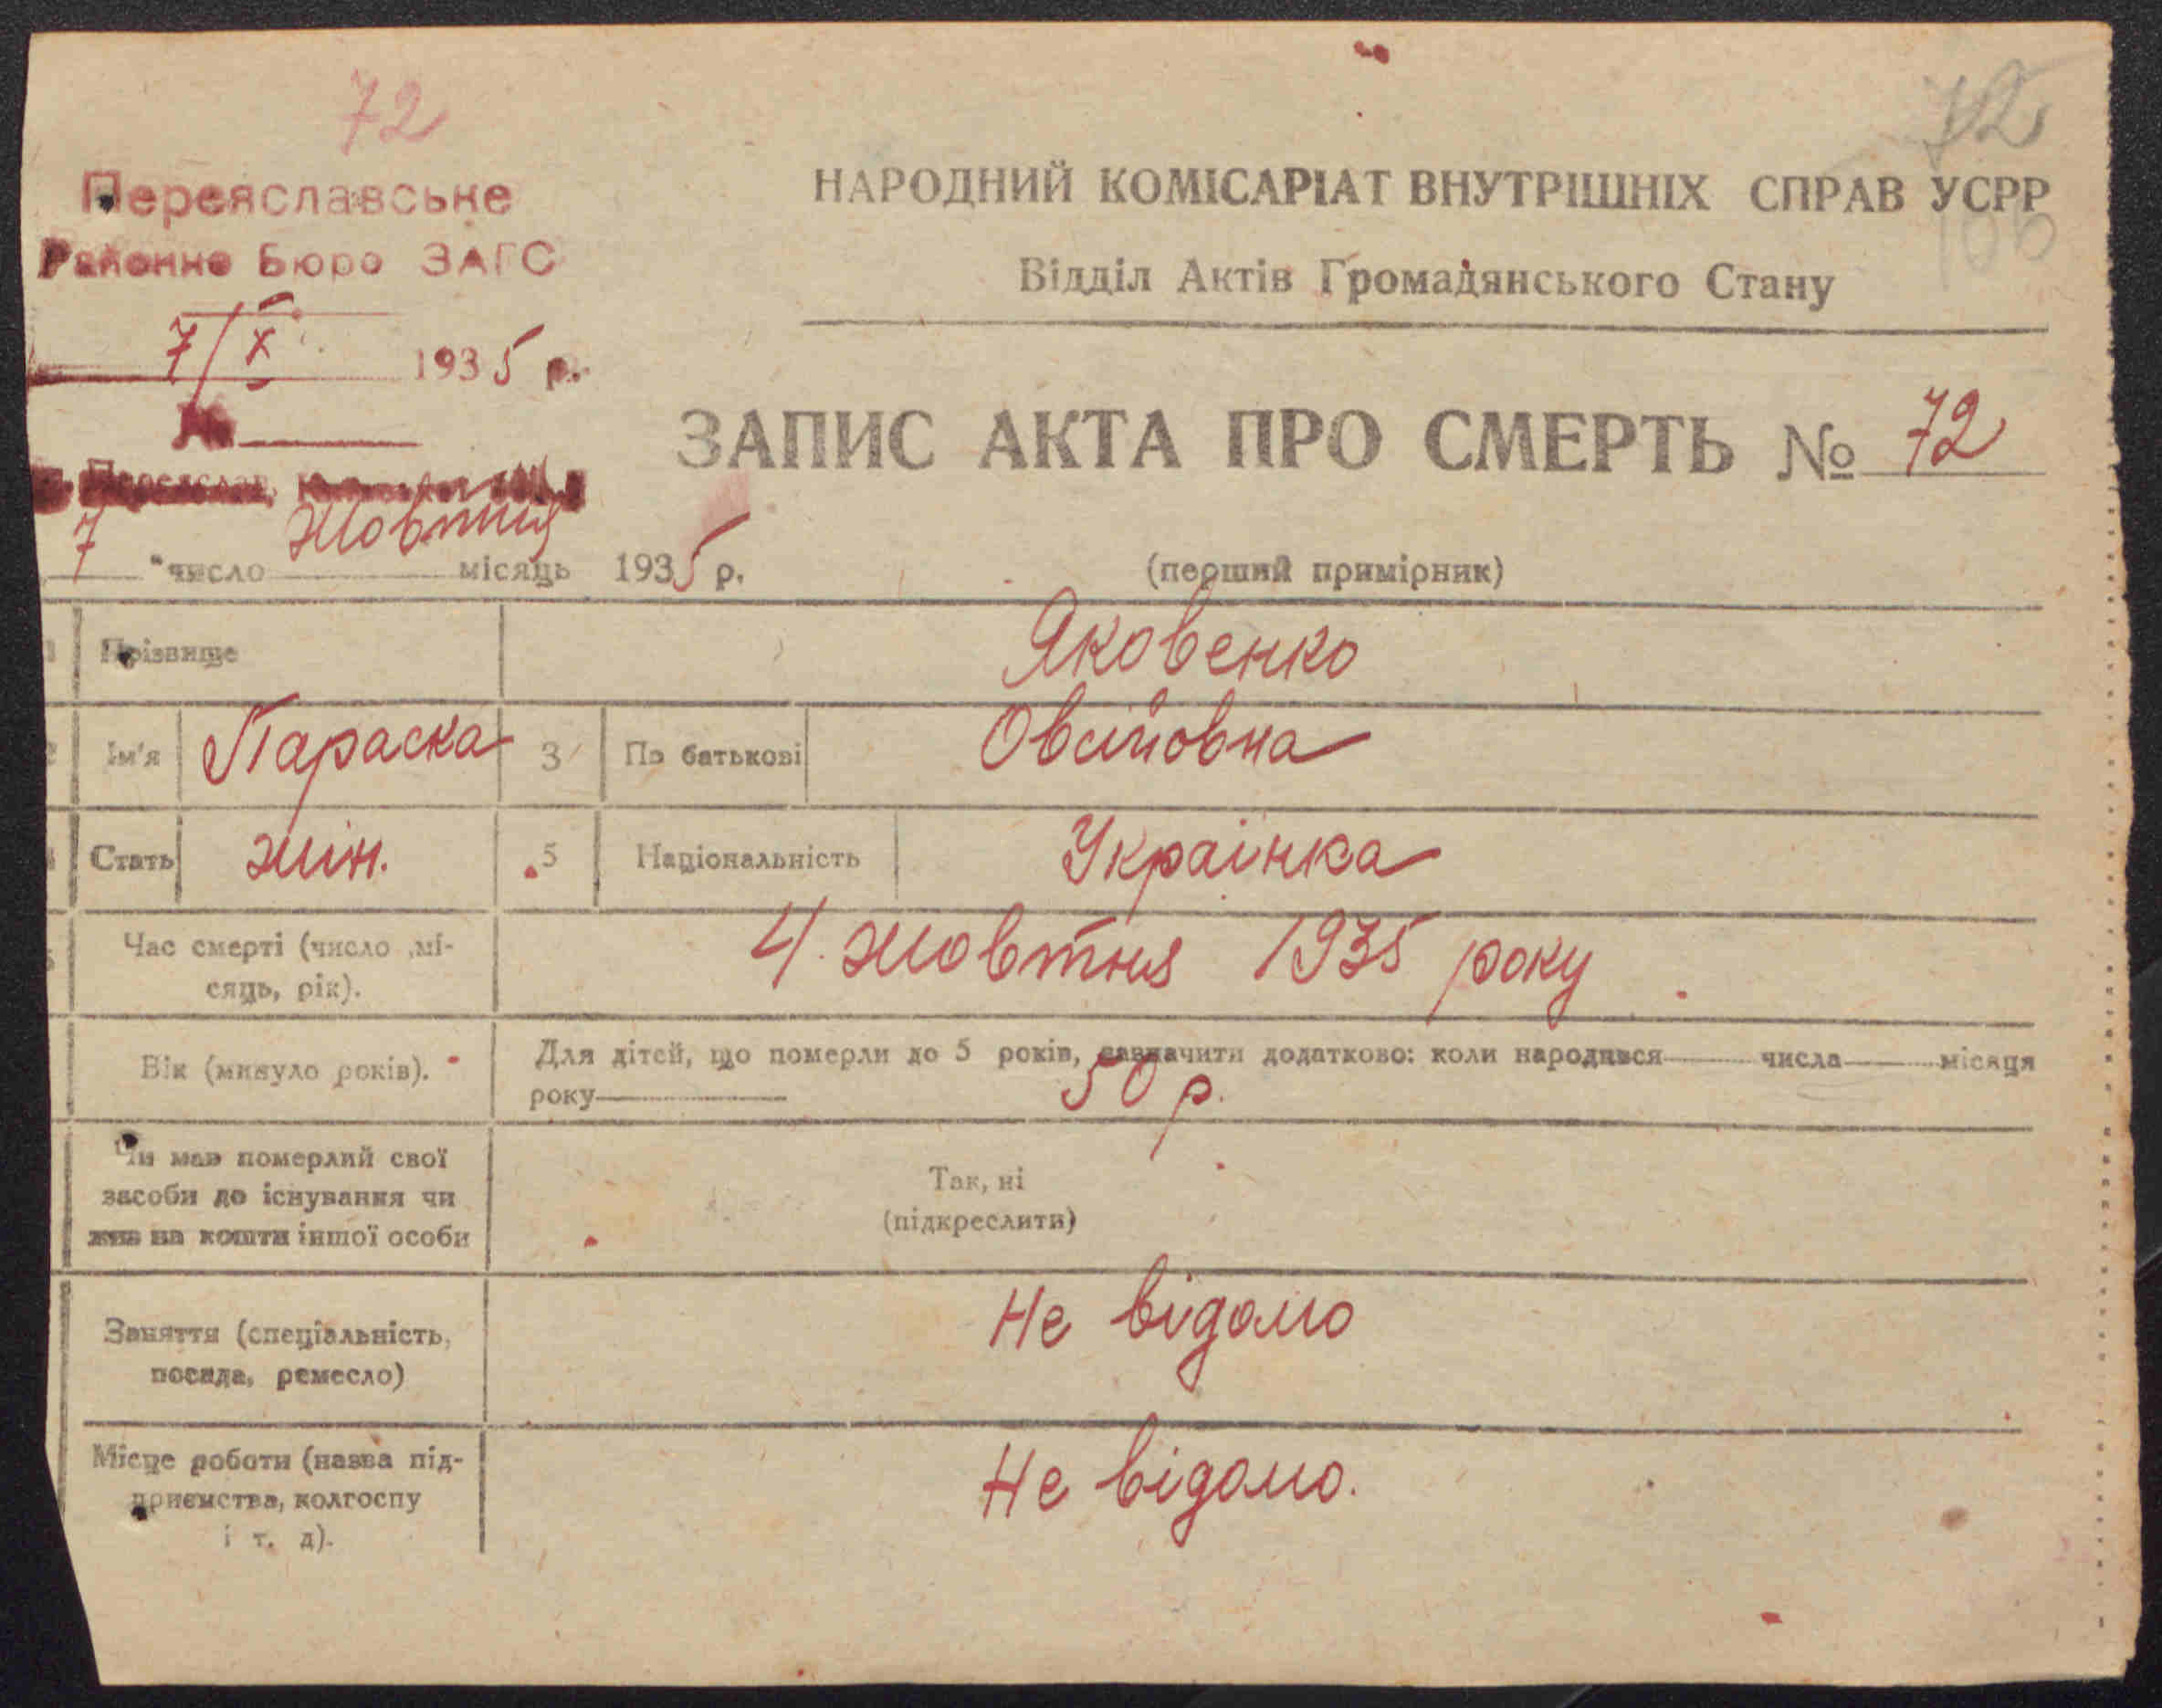 72
72
Переяславське
Районне Бюро ЗАГС
7/X 1935 р.
№
Переяслав,
НАРОДНИЙ КОМІСАРІАТ ВНУТРІШНІХ СПРАВ УСРР
106
Відділ Актів Громадянського Стану
ЗАПИС АКТА ПРО СМЕРТЬ № 72
7 "число Жовтня місяць 1935 р.
(перший примірник)
Прізвище Яковенко
Ім'я Параска 3 По батькові Овсійовна
Стать жін. 5 Національність Українка
Час смерті (число ,мі-
сяць, рік).
4. жовтня 1935 року
Вік (минуло років).
Для дітей, що померли до 5 років, зазначити додатково: коли народився числа місяця
року 50 р.
Чи мав померлий свої
засоби до існування чи
жив на кошти іншої особи
Так, ні
(підкреслити)
Заняття (спеціальність,
посада, ремесло)
Не відомо
Місце роботи (назва під-
приємства, колгоспу
і т. д).
Не відомо.